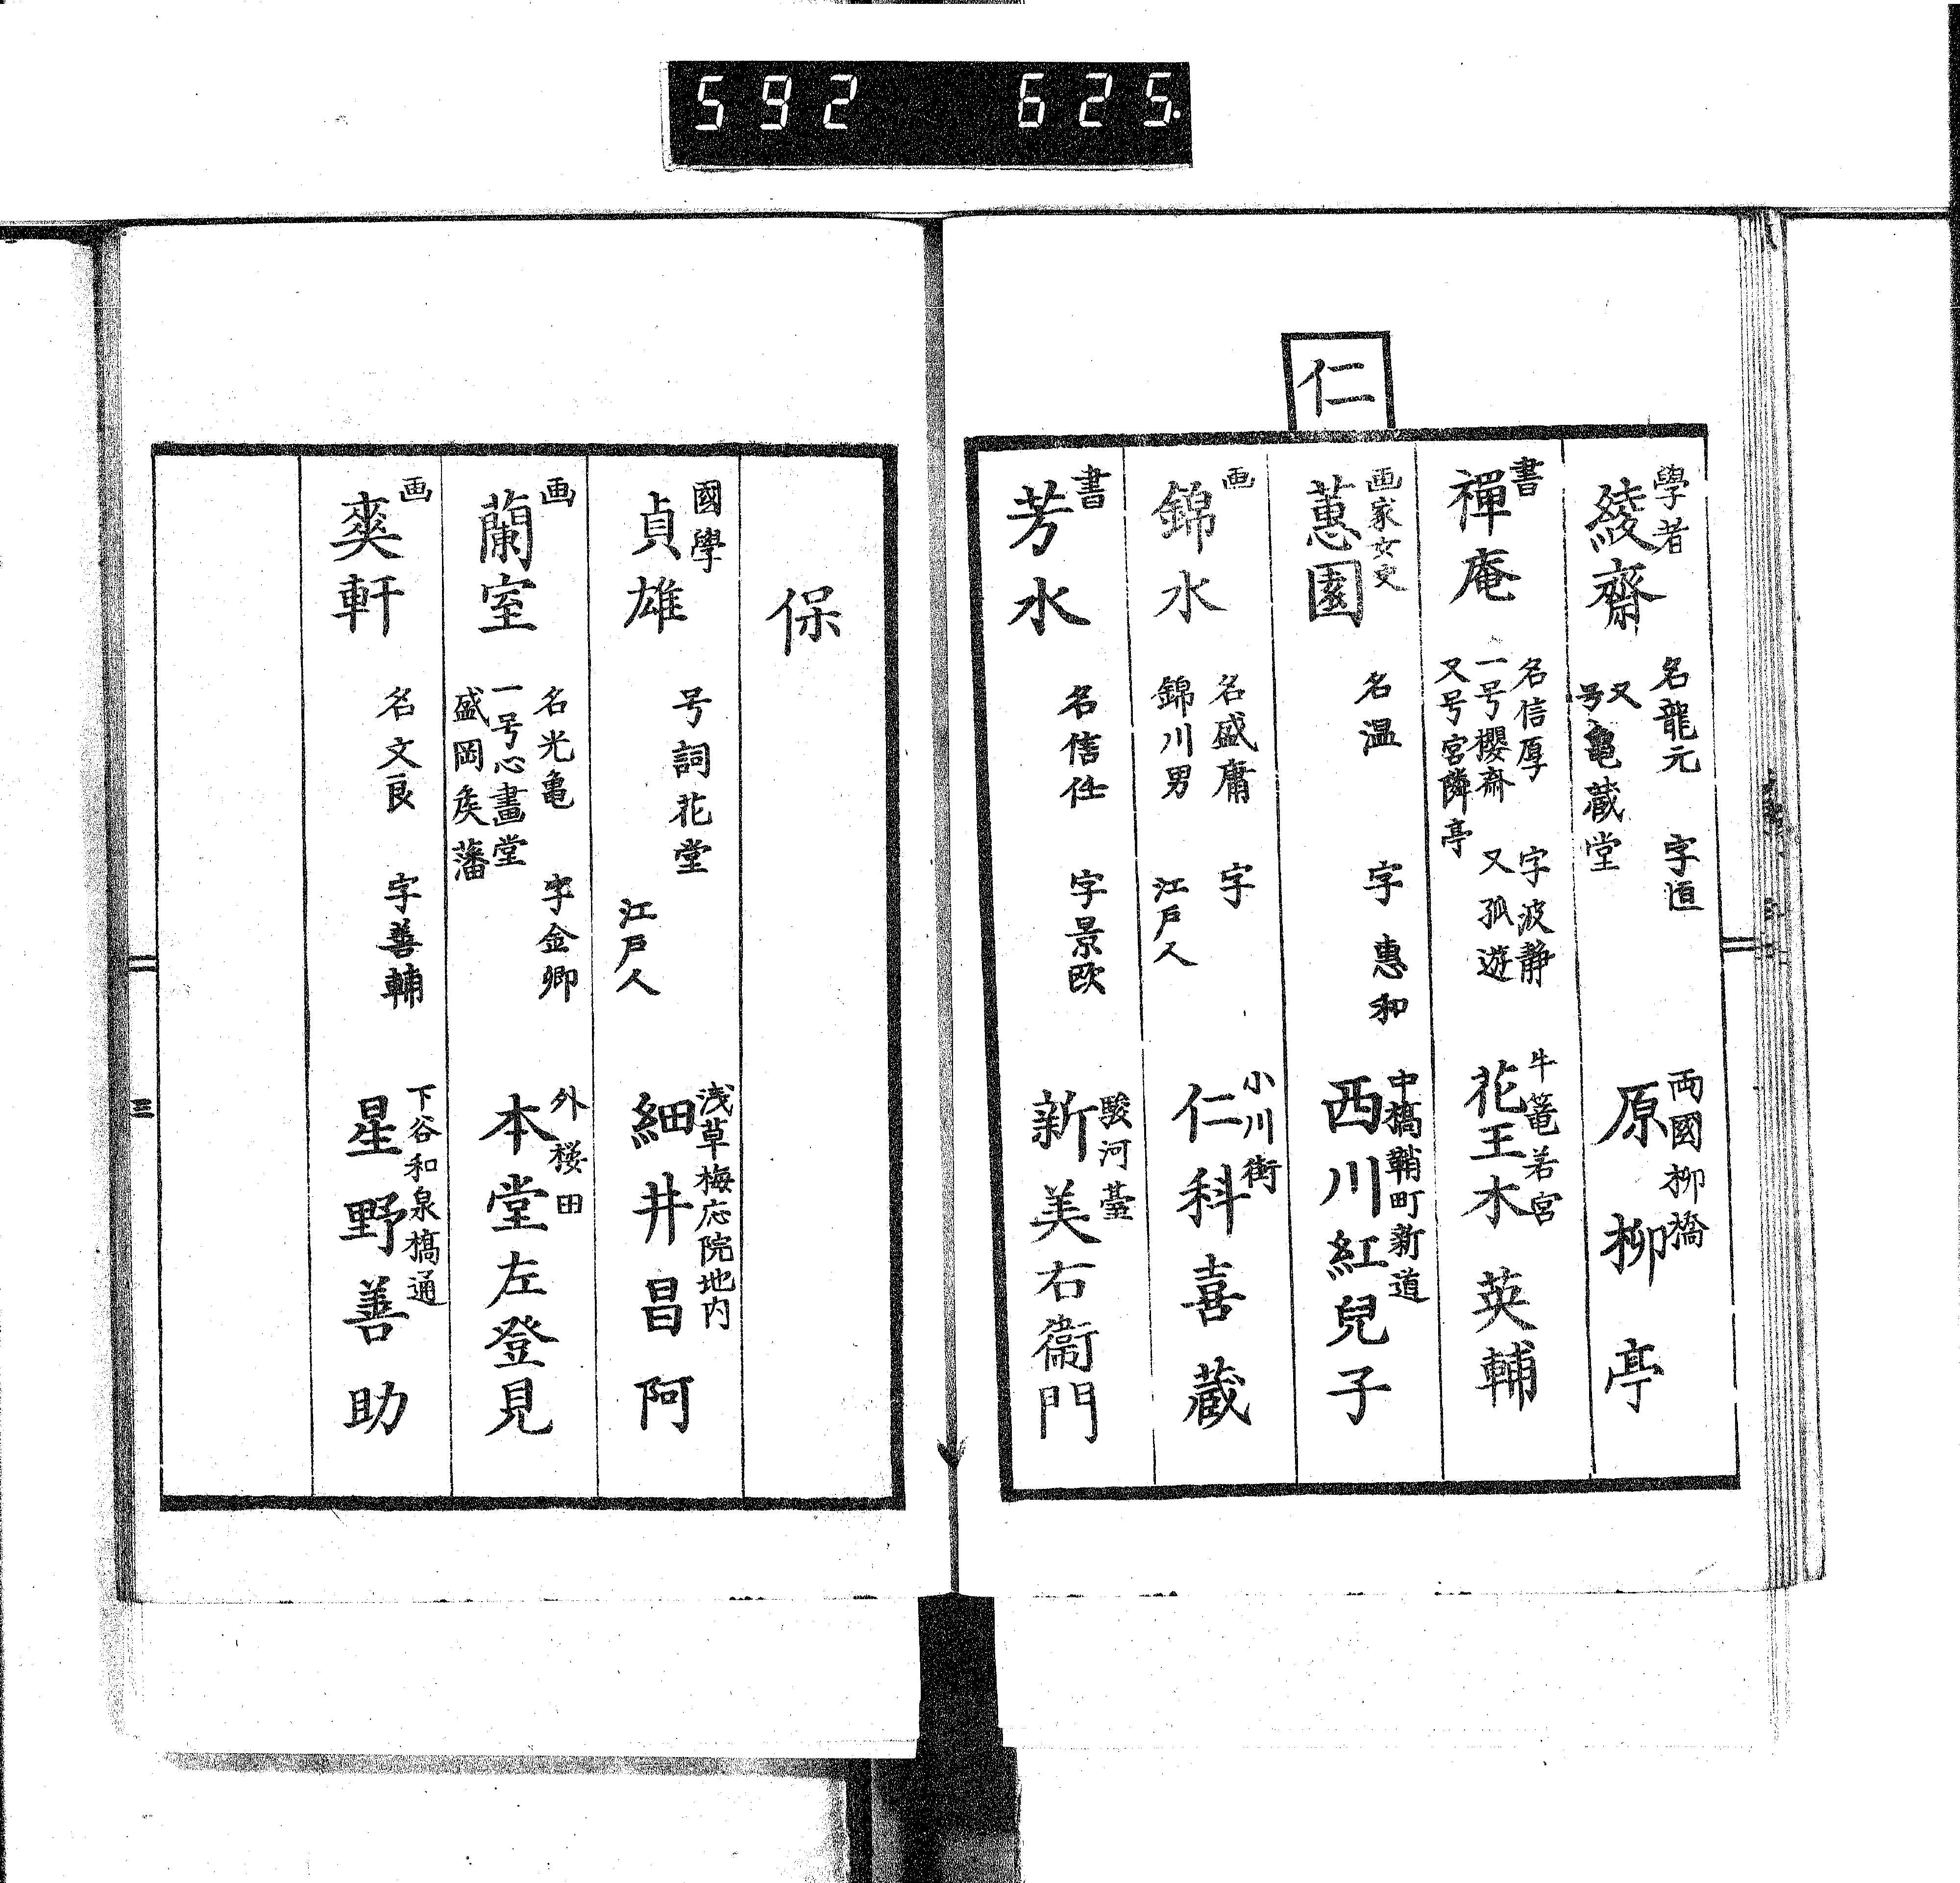 592 625.
學者
綾齋
名龍元 字恒
又号亀蔵堂
両國柳橋
原柳亭
書
禪庵
名信厚 字波静
一号櫻齋 又孤遊
又号宮隣亭
牛篭若宮
花王木英輔
仁
画家女史
蕙園
名温 字惠和
中橋鞘町新道
西川紅兒子
画
錦水
名盛庸 字
錦川男 江戸人
小川街
仁科喜蔵
書
芳水
名信任 字景欧
駿河臺
新美右衞門
保
國學
貞雄
号詞花堂
江戸人
浅草梅応院地内
細井昌阿
画
蘭室
名光亀 字金卿
一号心畫堂
盛岡矦藩
外桜田
本堂左登見
画
奭軒
名文良 字善輔
下谷和泉橋通
星野善助
三